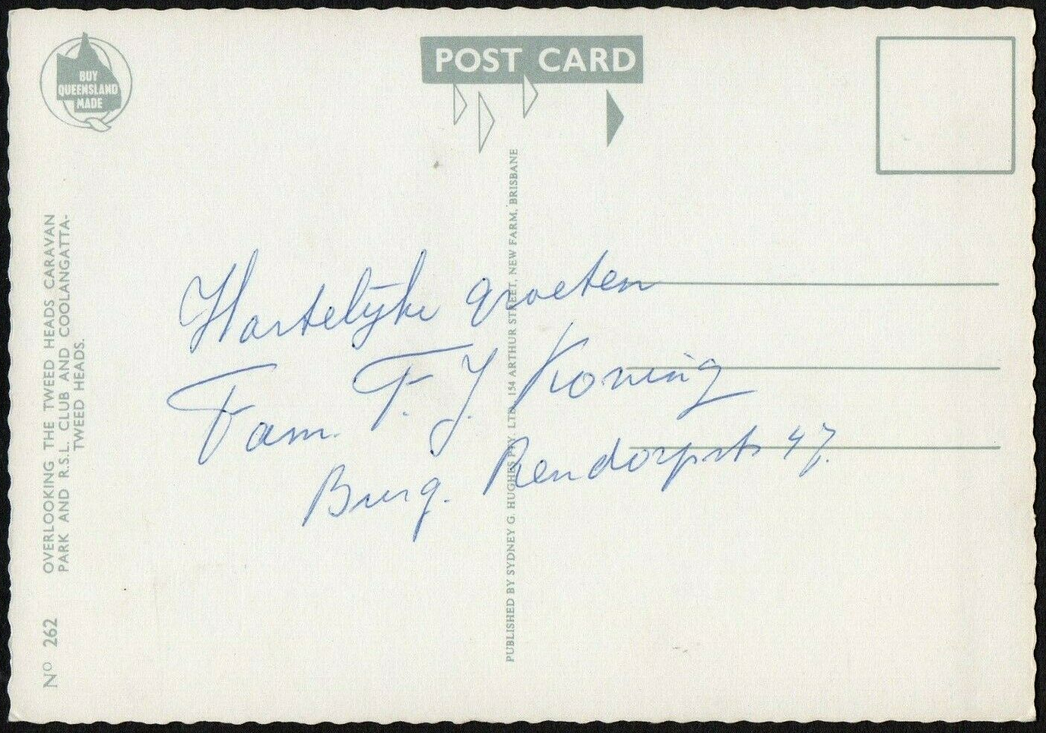 BUY
QUEENSLAND
MADE
POST CARD
OVERLOOKING THE TWEED HEADS CARAVAN
PARK AND R.S.L. CLUB AND COOLANGATTA-
TWEED HEADS.
Nº 262
PUBLISHED BY SYDNEY G. HUGHES PTY. LTD., 154 ARTHUR STREET, NEW FARM, BRISBANE
Hartelijke groeten
Fam. F. J. Koning
Burg. Rendorpstr 47.